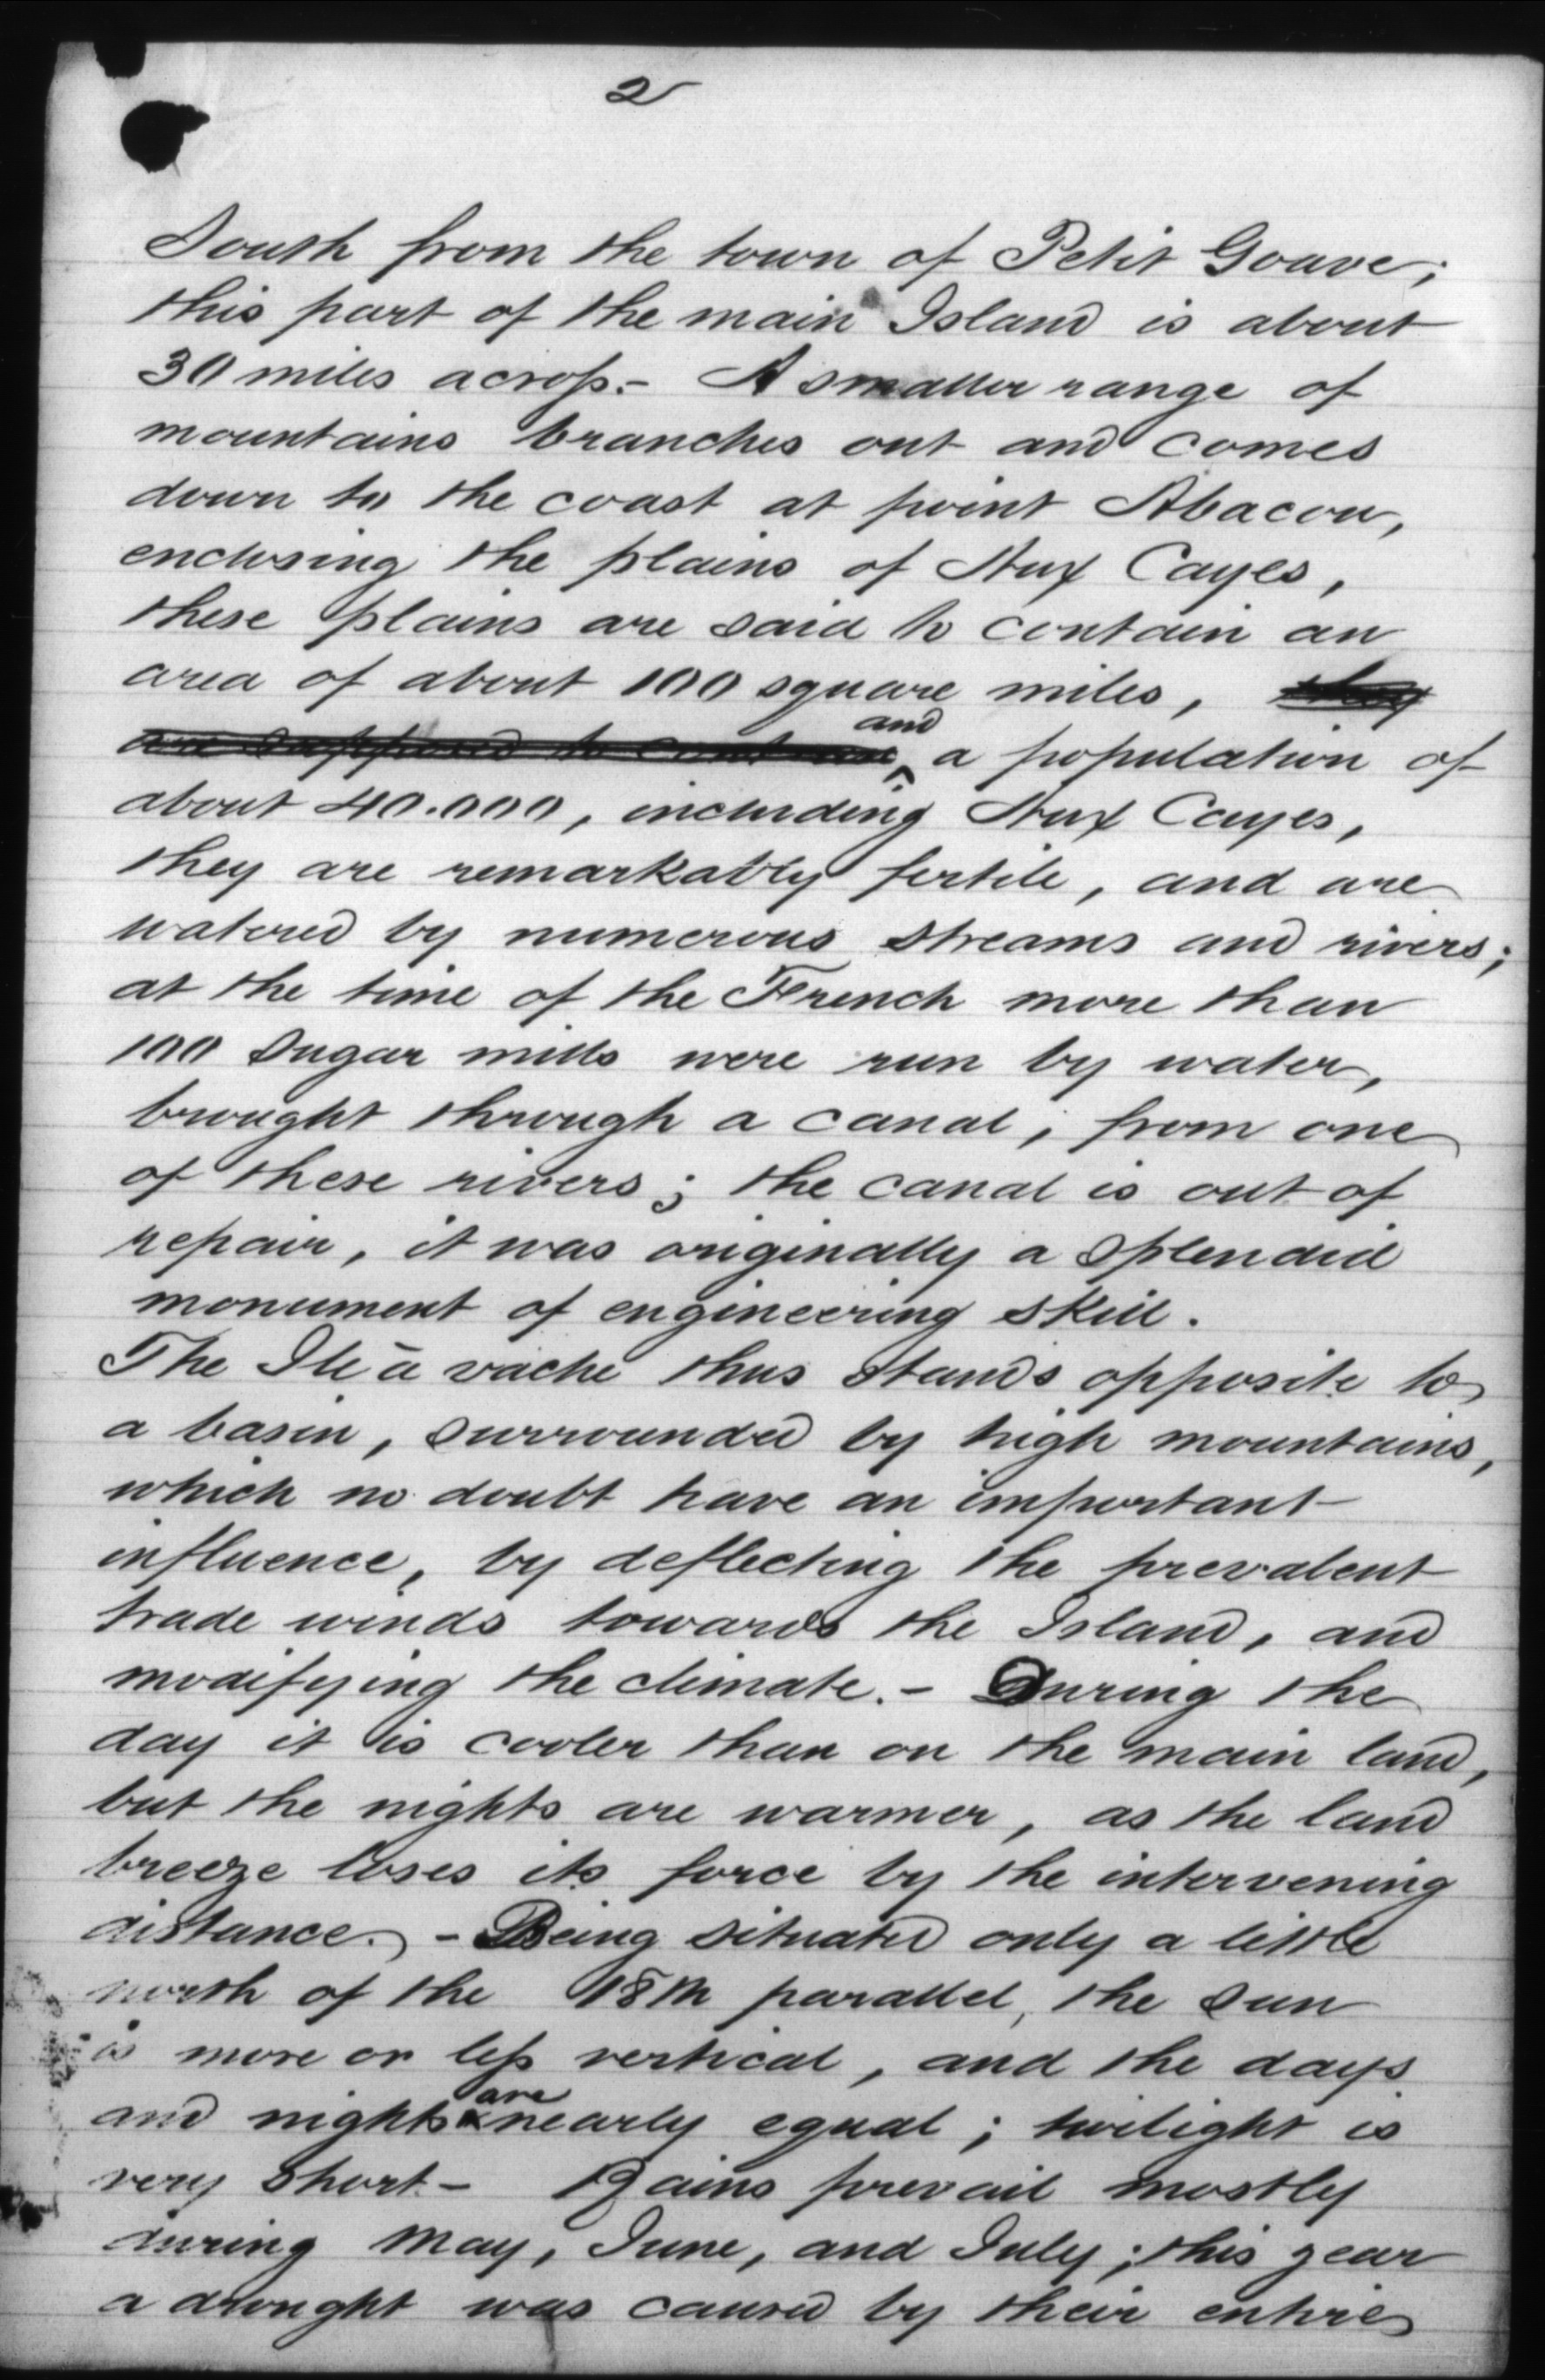 2
South from the town of Petit Goave;
this part of the main Island is about
30 miles across.- A smaller range of
mountains branches out and comes
down to the coast at point Abacou,
enclosing the plains of Aux Cayes,
these plains are said to contain an
area of about 100 square miles, they
are supposed to contain and a population of
about 40.000, including Aux Cayes,
they are remarkably fertile, and are
watered by numerous streams and rivers;
at the time of the French more than
100 Sugar mills were run by water,
brought through a canal, from one
of these rivers; the canal is out of
repair, it was originally a splendid
monument of engineering skill.
The Ile à vache thus stands opposite to
a basin, surrounded by high mountains,
which no doubt have an important
influence, by deflecting the prevalent
trade winds towards the Island, and
modifying the climate.- During the
day it is cooler than on the main land,
but the nights are warmer, as the land
breeze loses its force by the intervening
distance. - Being situated only a little
north of the 18th parallel, the sun
is more or less vertical, and the days
and nights are nearly equal; twilight is
very short - Rains prevail mostly
during May, June, and July; this year
a drought was caused by their entire